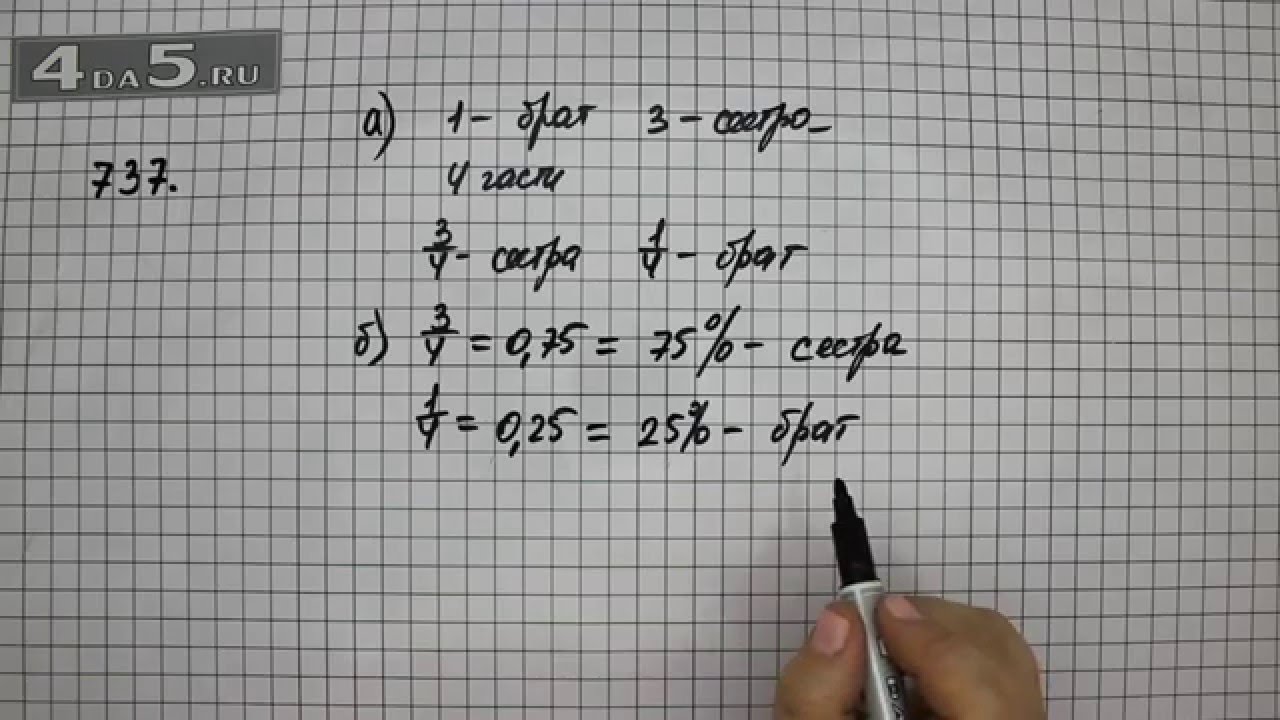 4DA5.RU
737.
а) 1 - брат 3 - сестра
4 части
3/4 - сестра 1/4 - брат
б) 3/4 = 0,75 = 75% - сестра
1/4 = 0,25 = 25% - брат